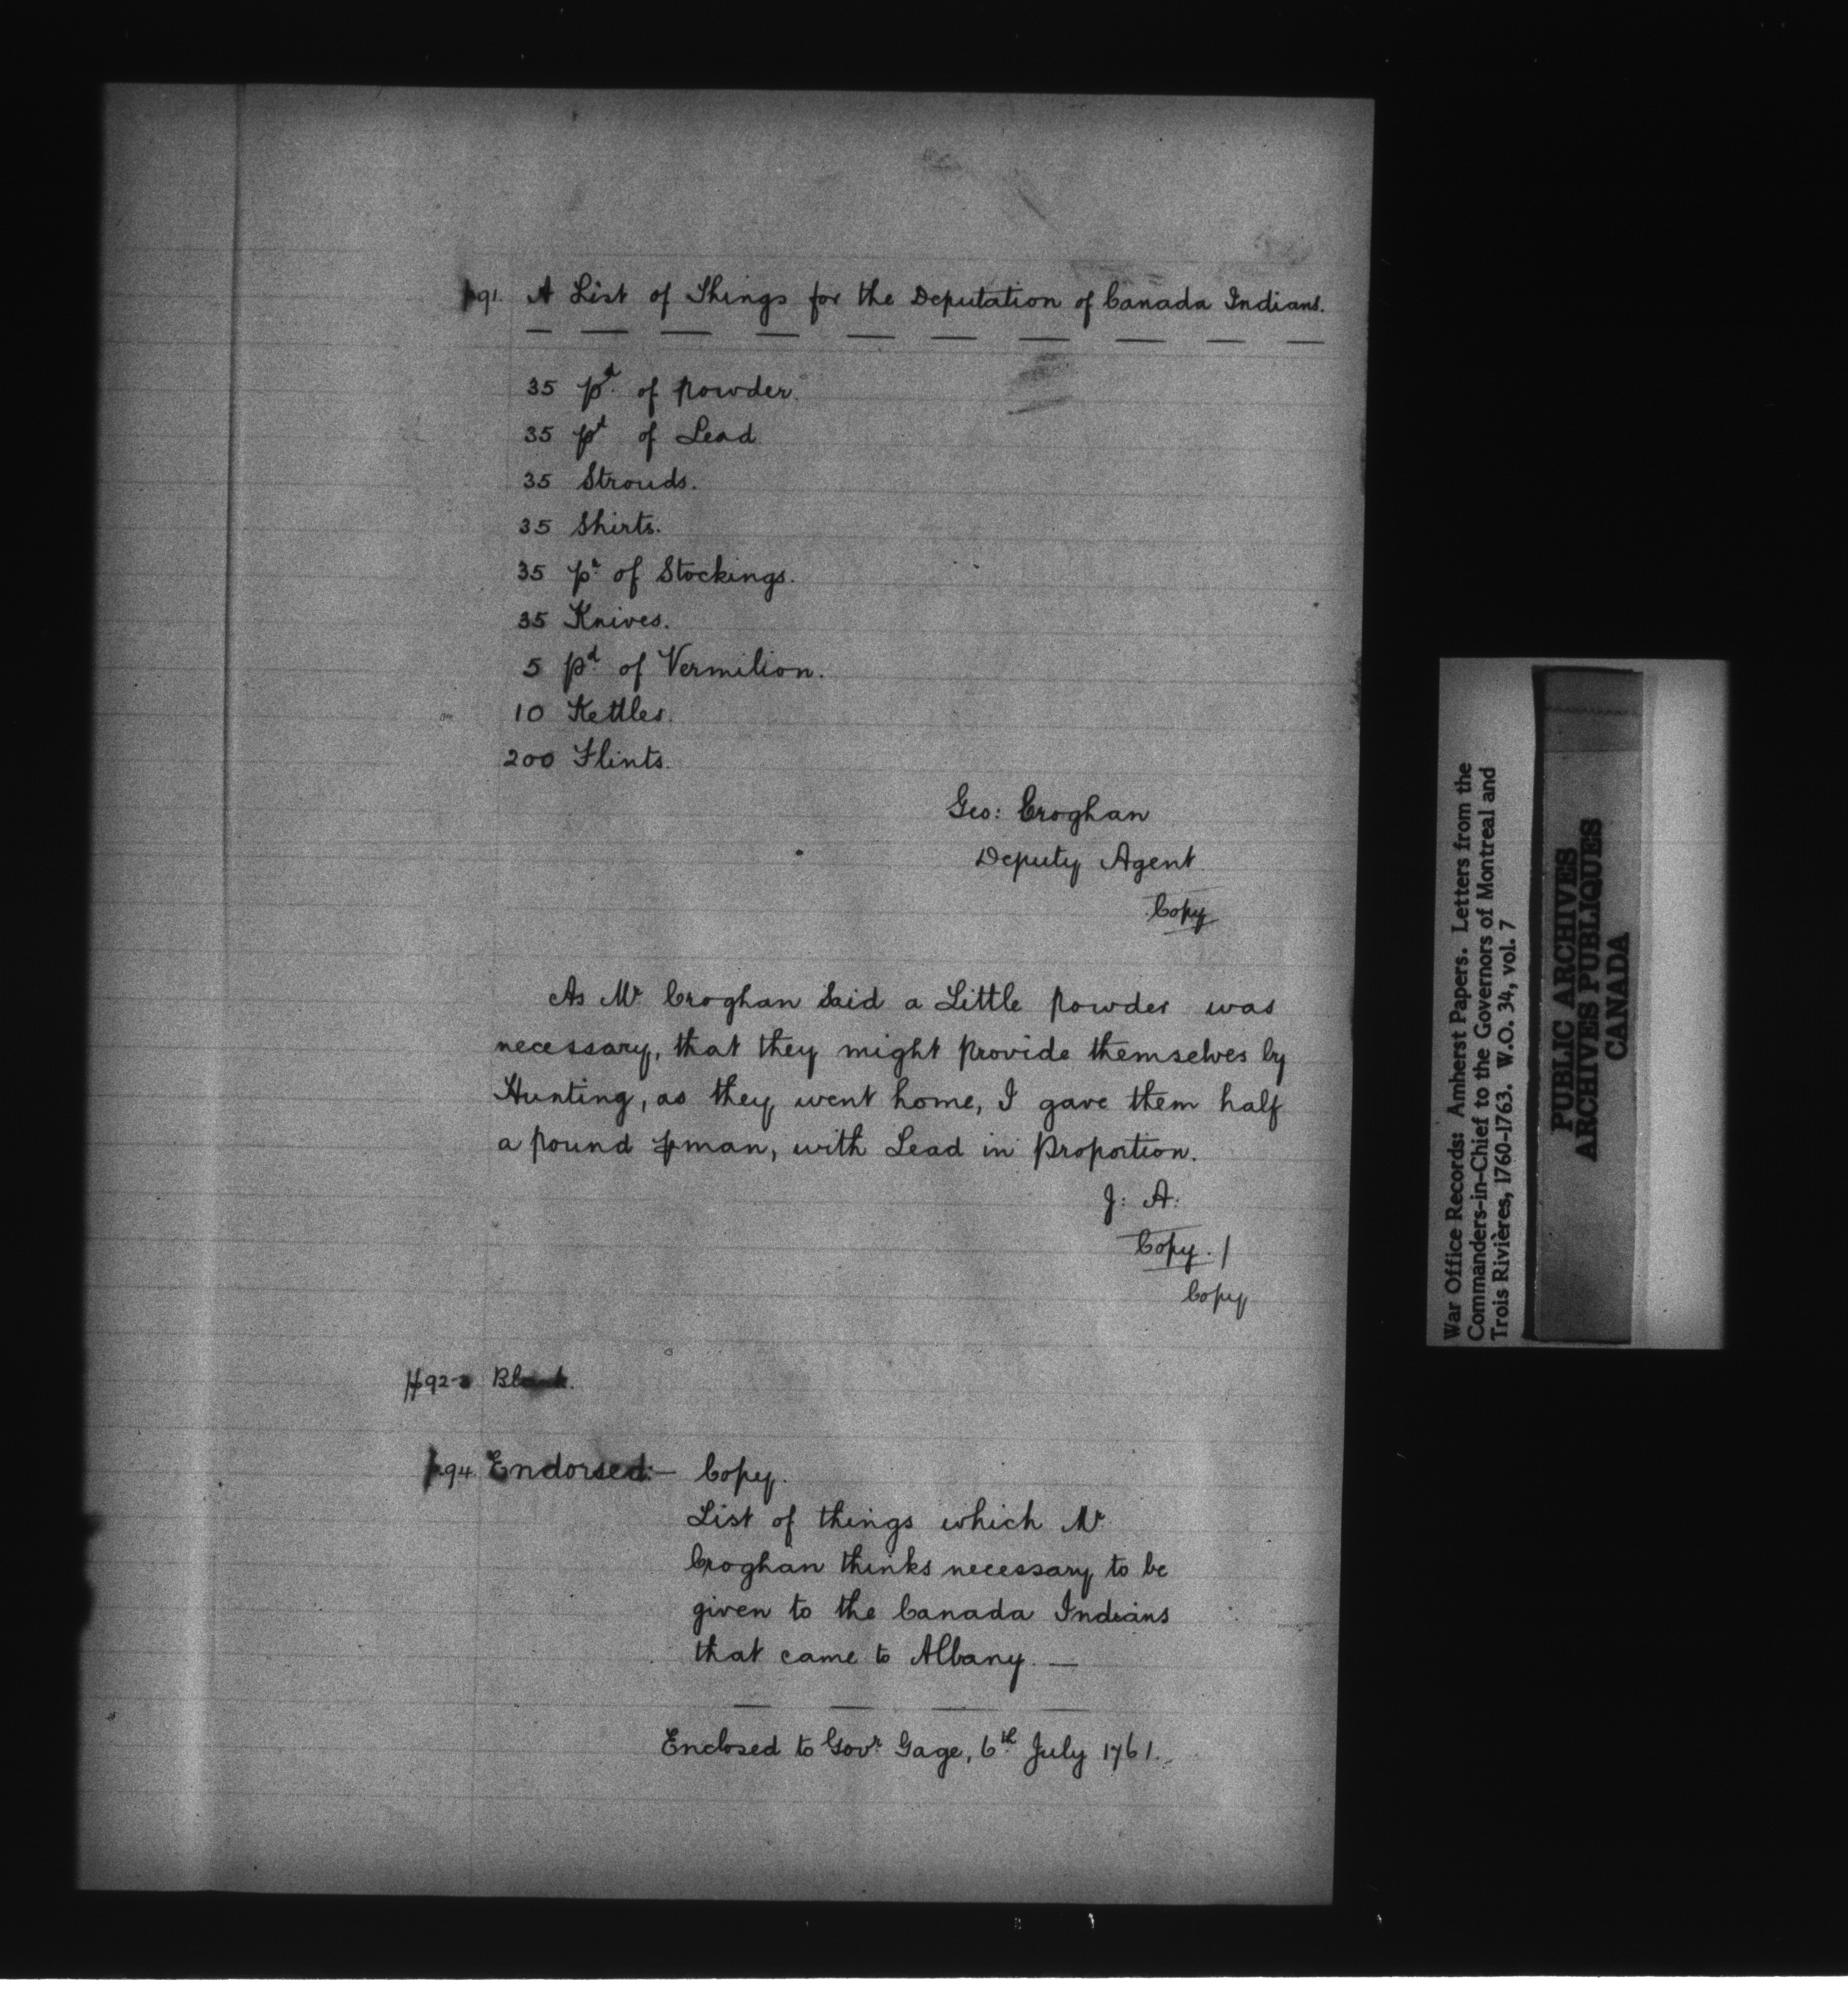 p91. A List of Things for the Deputation of Canada Indians.
35 pd. of Powder.
35 pd of Lead
35 Strouds.
35 Shirts.
35 pr. of Stockings.
35 Knives.
5 pd. of Vermilion.
10 Kettles.
200 Flints.
Geo: Croghan
Deputy Agent.
Copy
As Mr Croghan Said a Little Powder was
necessary, that they might Provide themselves by
Hunting, as they went home, I gave them half
a Pound ⅌ man, with Lead in Proportion.
J: A:
Copy. /
Copy
pp92-3 Blank.
p94 Endorsed:— Copy.
List of things which Mr.
Croghan thinks necessary to be
given to the Canada Indians
that came to Albany. —
Enclosed to Govr. Gage, 6th July 1761.
War Office Records: Amherst Papers. Letters from the
Commanders-in-Chief to the Governors of Montreal and
Trois Rivières, 1760-1763. W.O. 34, vol. 7
PUBLIC ARCHIVES
ARCHIVES PUBLIQUES
CANADA